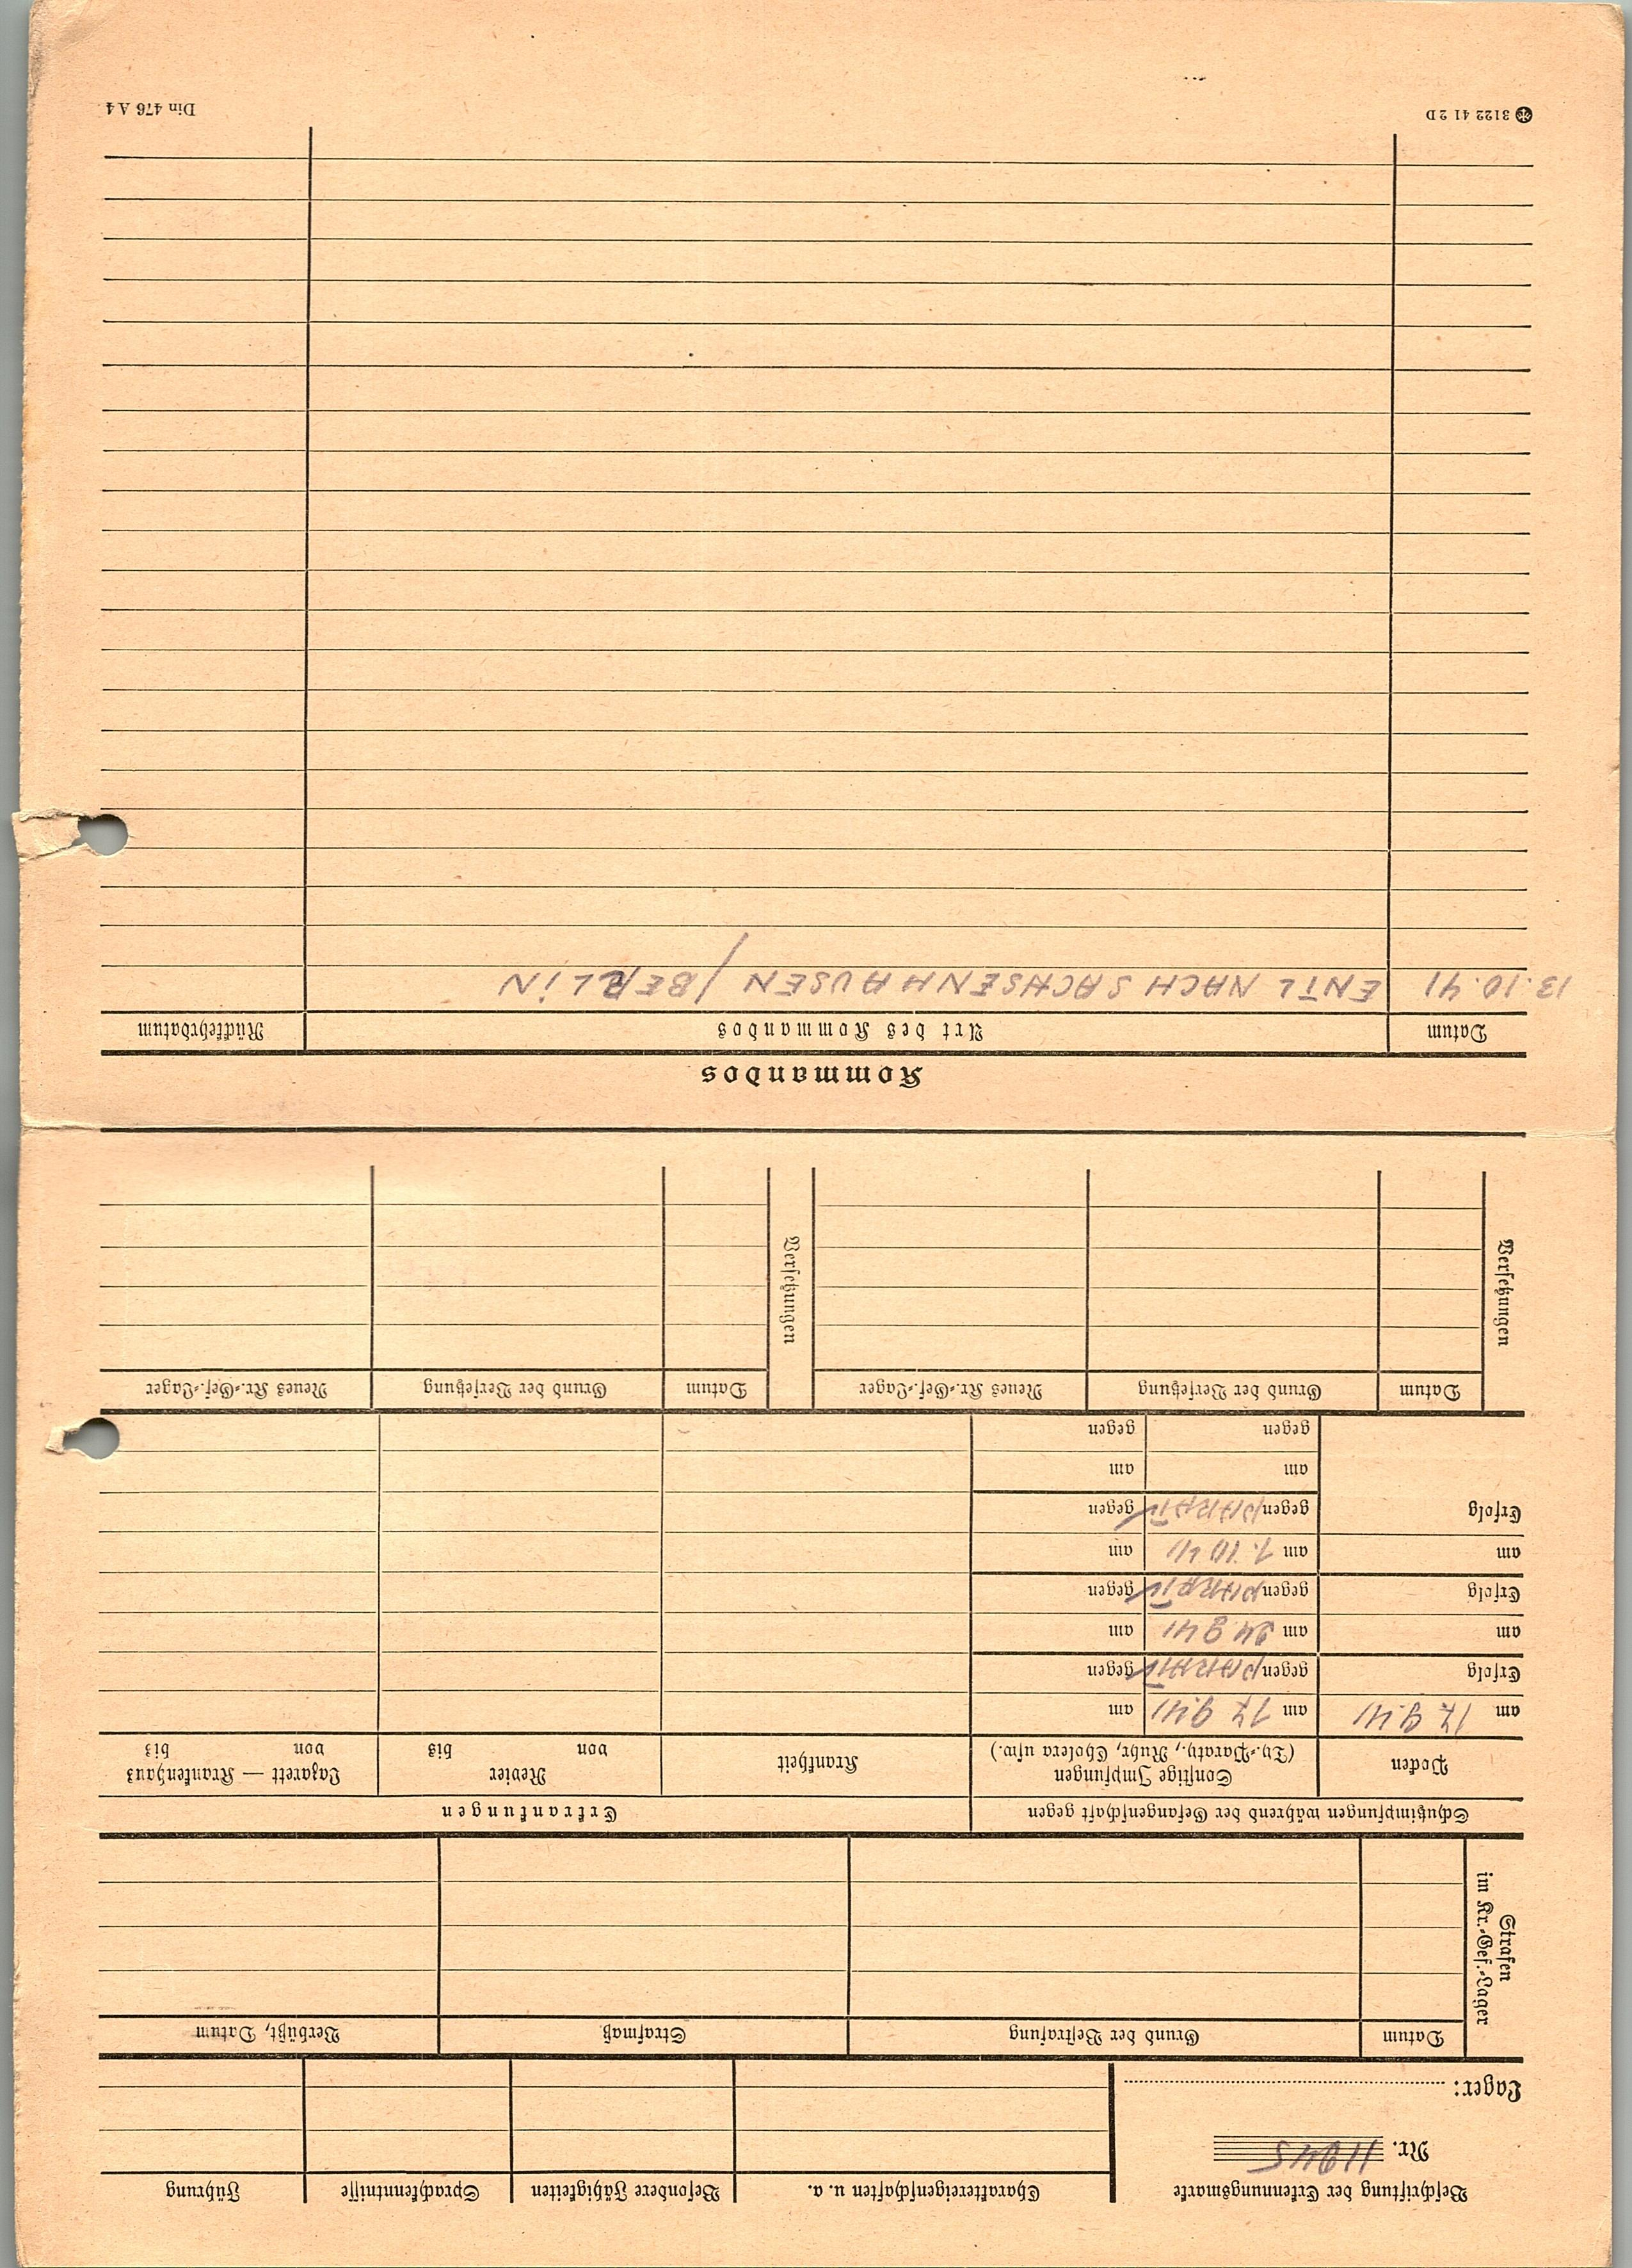 Beschriftung der Erkennungsmarke
Nr. 11945
Lager:
Charaktereigenschaften u. a.
Besondere Fähigkeiten
Sprachkenntnisse
Führung
Strafen
im Kr.-Gef.-Lager
Datum
Grund der Bestrafung
Strafmaß
Verbüßt, Datum
Schutzimpfungen während der Gefangenschaft gegen
Erkrankungen
Pocken
Sonstige Impfungen
(Ty.-Paraty., Ruhr, Cholera usw.)
Krankheit
Revier
von bis
Lazarett — Krankenhaus
von bis
am 17 9.41 am 17 9.41 am
Erfolg gegen PARATŸ gegen
am am 24 9 41 am
Erfolg gegen PARATŸ gegen
am am 1.10 41 am
Erfolg gegen PARATŸ gegen
am am
gegen gegen
Versetzungen
Datum
Grund der Versetzung
Neues Kr.-Gef.-Lager
Versetzungen
Datum
Grund der Versetzung
Neues Kr.-Gef.-Lager
Kommandos
Datum
Art des Kommandos
Rückkehrdatum
13.10.41 ENTL NACH SACHSENHAUSEN / BERLIN
3122 41 2 D
Din 476 A 4